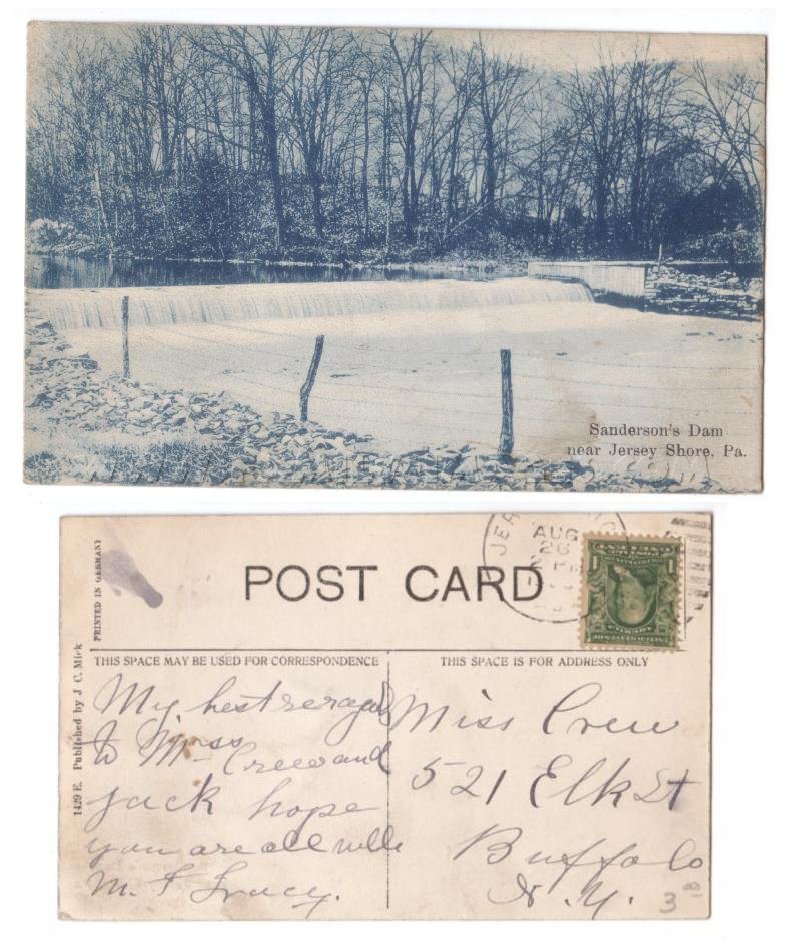 Sanderson's Dam
near Jersey Shore, Pa.
PRINTED IN GERMANY
POST CARD
AUG
26
1
THIS SPACE MAY BE USED FOR CORRESPONDENCE
THIS SPACE IS FOR ADDRESS ONLY
1429 E. Published by J. C. Mick
My best regards
to Miss
Crew and
Jack hope
you are all well
M. F. Tracy.
Miss Crew
521 Elk St
Buffalo
N. Y.
3